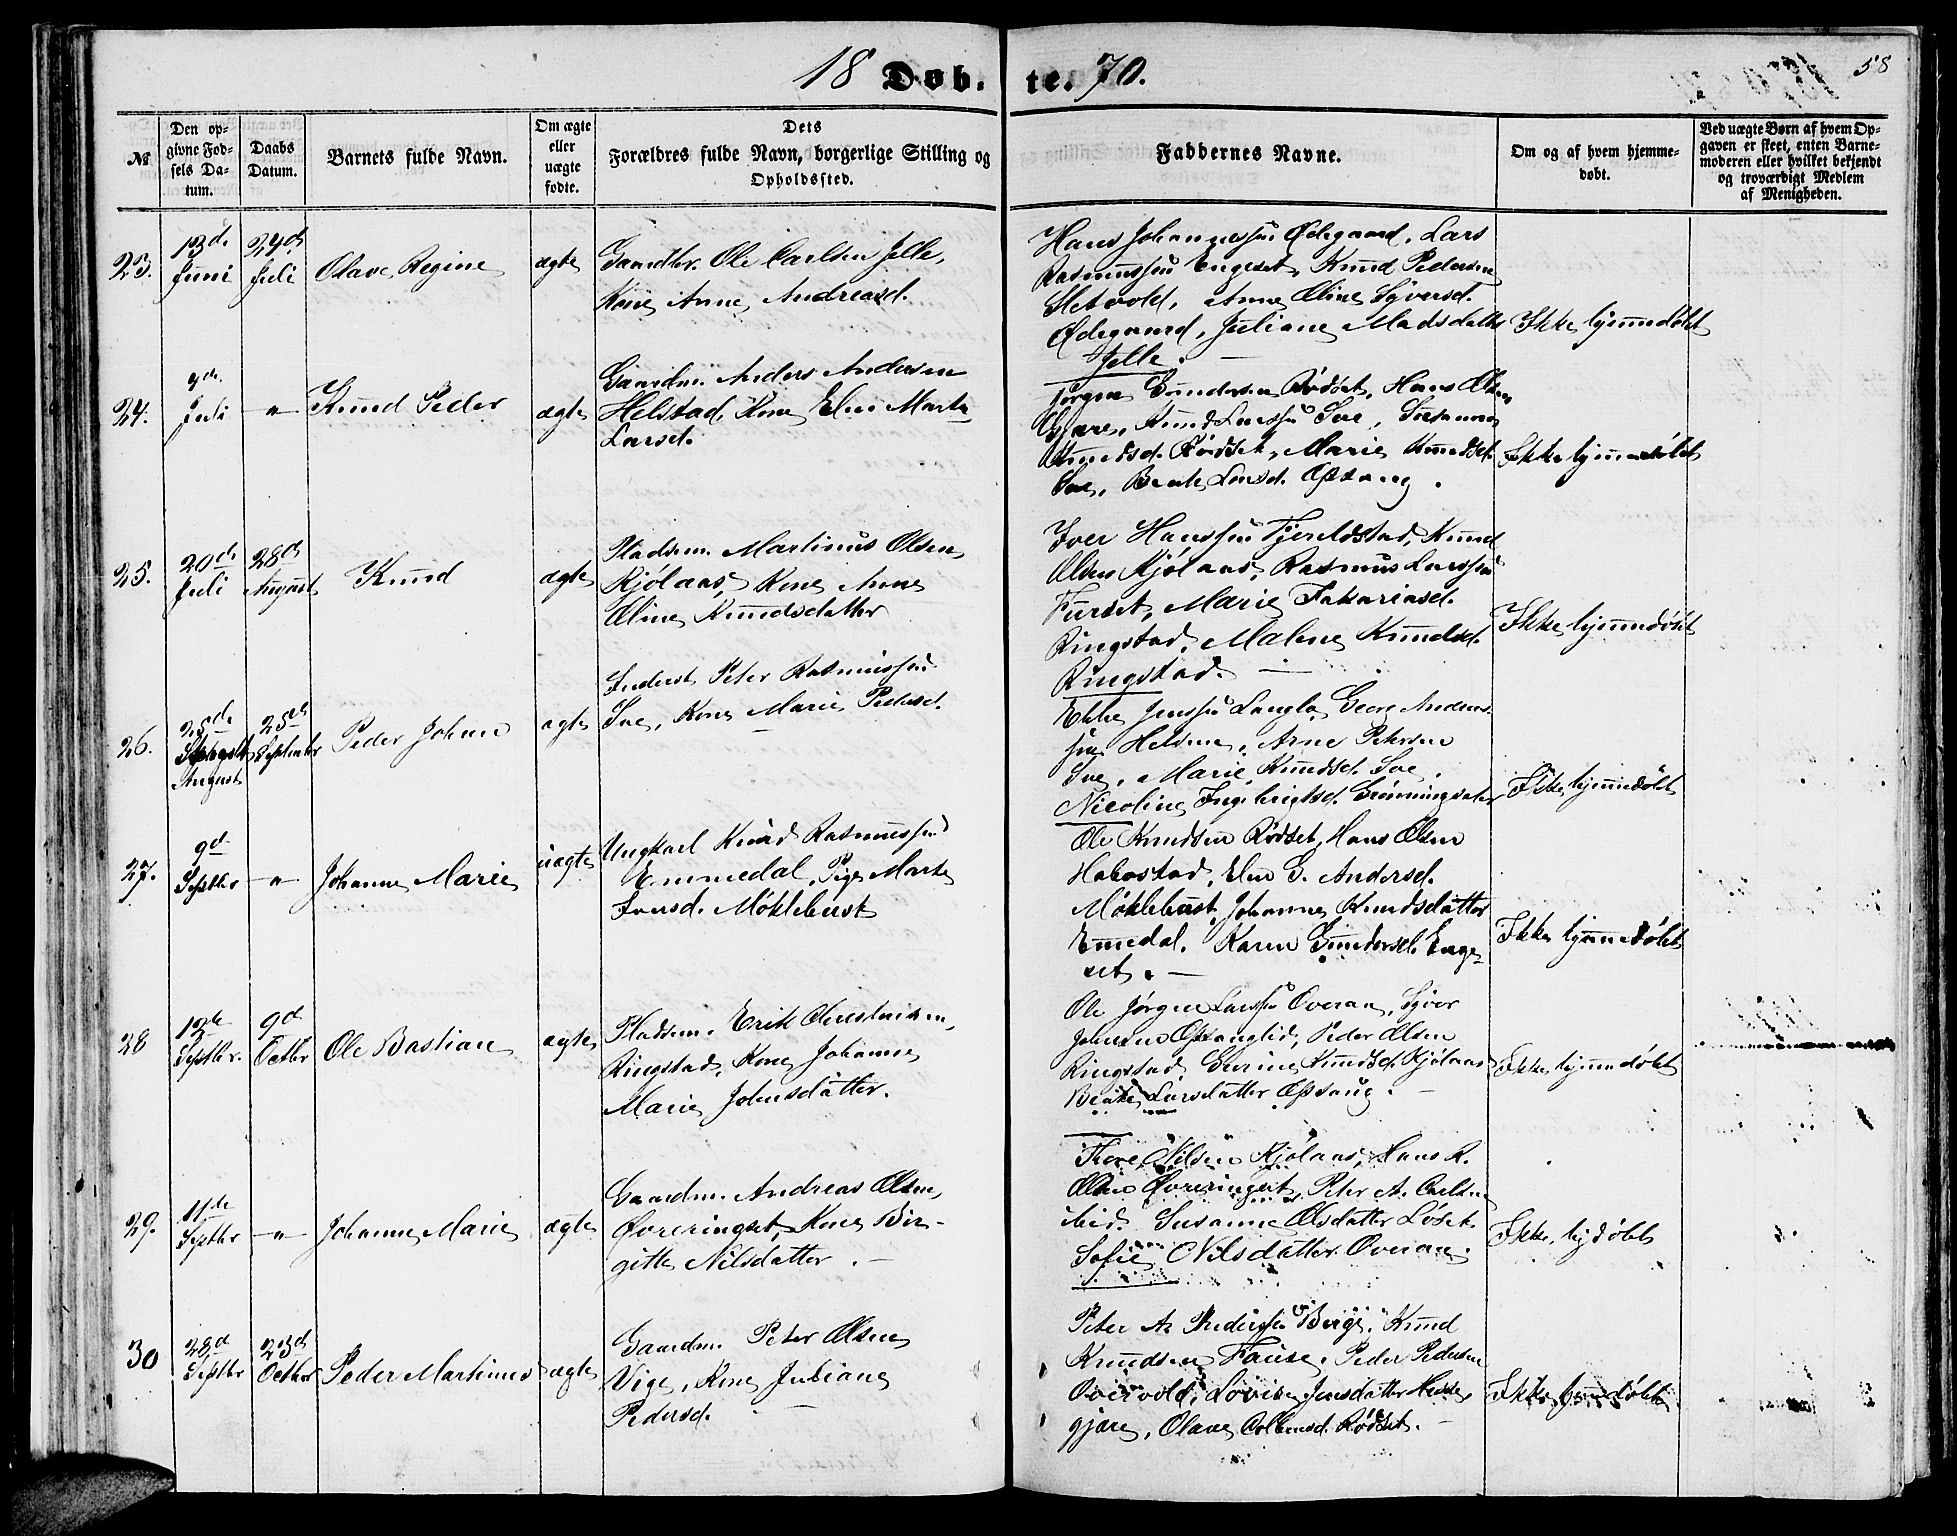 18 Døb. te. 70.
58
№
Den op-
givne Fød-
sels Da-
tum.
Daabs
Datum.
Barnets fulde Navn.
Om ægte
eller
uægte
fødte.
Dets
Forældres fulde Navn, borgerlige Stilling og
Opholdssted.
Faddernes Navne.
Om og af hvem hjemme-
døbt.
Ved uægte Børn af hvem Op-
gaven er skeet, enten Barne-
moderen eller hvilket bekjendt
og troværdigt Medlem
af Menigheden.
23.
13de
Juni
24de
Juli
Olave Regine
ægte
Gaardbr. Ole Carlsen Jelle,
Kone Anne Andreasd.
Hans Johannessen Ødegaard, Lars
Rasmussen Engeset, Knud Pedersen
Sletvold, Anne Oline Syversd.
Ødegaard, Juliane Madsdatter
Jelle.
Ikke hjemmedøbt
24.
9de
Juli
"
Knud Peder
ægte
Gaardm. Anders Andersen
Helstad, Kone Elen Marta
Larsd.
Jørgen Gundersen Rødset, Hans Olsen
Gjære, Knud Larssen Sve, Susanne
Knudsd. Rødset, Marie Knudsd.
Sve, Beate Larsd. Opsang.
Ikke hjemmedøbt
25.
20de
Juli
28de
August
Knud
ægte
Pladsm. Martinus Olsen
Kjölaas, Kone Anne
Oline Knudsdatter
Iver Hanssen Fjeldstad, Knud
Olsen Kjölaas, Rasmus Larssen
Furset, Marie Sakariasd.
Ringstad, Malene Knudsd.
Ringstad.
Ikke hjemmedøbt
26.
25de
August
25de
September
Peder Johan
ægte
Inderst Peter Rasmussen
Sve, Kone Marie Pedersd.
Jenssen Langlo, Georg Anders-
sen Helsem, Arne Petersen
Sve, Marie Knudsd. Sve,
Nicoline Ingebrigtsd. Grønningsæter
Ikke hjemmedøbt
27.
9de
Septbr
"
Johanne Marie
uægte
Ungkarl Knud Rasmussen
Emmedal, Pige Marte
Iversd. Møklebust
Ole Knudsen Rødset, Hans Olsen
Habostad, Elen G. Andersd.
Møklebust, Johanne Knudsdatter
Emedal, Karen Gundersd. Enge-
set.
Ikke hjemmedøbt
28
12te
Septbr.
9de
Octbr
Ole Bastian
ægte
Pladsm. Erik Christensen,
Ringstad, Kone Johanne
Marie Johnsdatter.
Ole Jørgen Larssen Overaa, Syver
Johnsen Opsanglid, Peder Olsen
Ringstad, Gurine Knudsd. Kjölaas
Beate Larsdatter Opsang.
Ikke hjemmedøbt
29.
11te
Septbr
"
Johanne Marie
ægte
Gaardm. Andreas Olsen,
Øvreringset, Kone Bir-
gitte Nilsdatter.
Thore Nilsen Kjölaas, Hans R.
Olsen Øvreringset, Peter A. Carlsen
ibid. Susanne Olsdatter Løset
Sofie Nilsdatter Overaa.
Ikke hjdøbt
30
28de
Septbr
23de
Octbr
Peder Martinus
ægte
Gaardm. Peter Olsen
Vige, Kone Juliane
Pedersd.
Peter A. Pederssen Berge, Knud
Knudsen Fause, Peder Pedersen
Overvold, Lovise Jensdatter Hesse-
gjære, Olave Colbensd. Rødset.
Ikke hjemdøbt